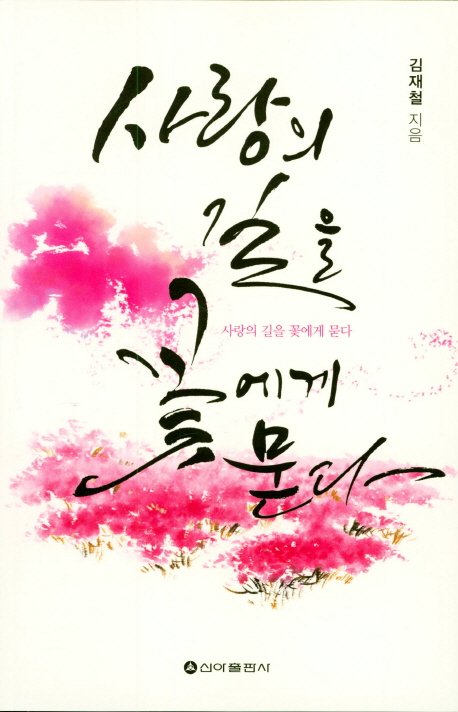 김재철 지음
사랑의
길을
사랑의 길을 꽃에게 묻다
꽃에게
묻다
신아출판사